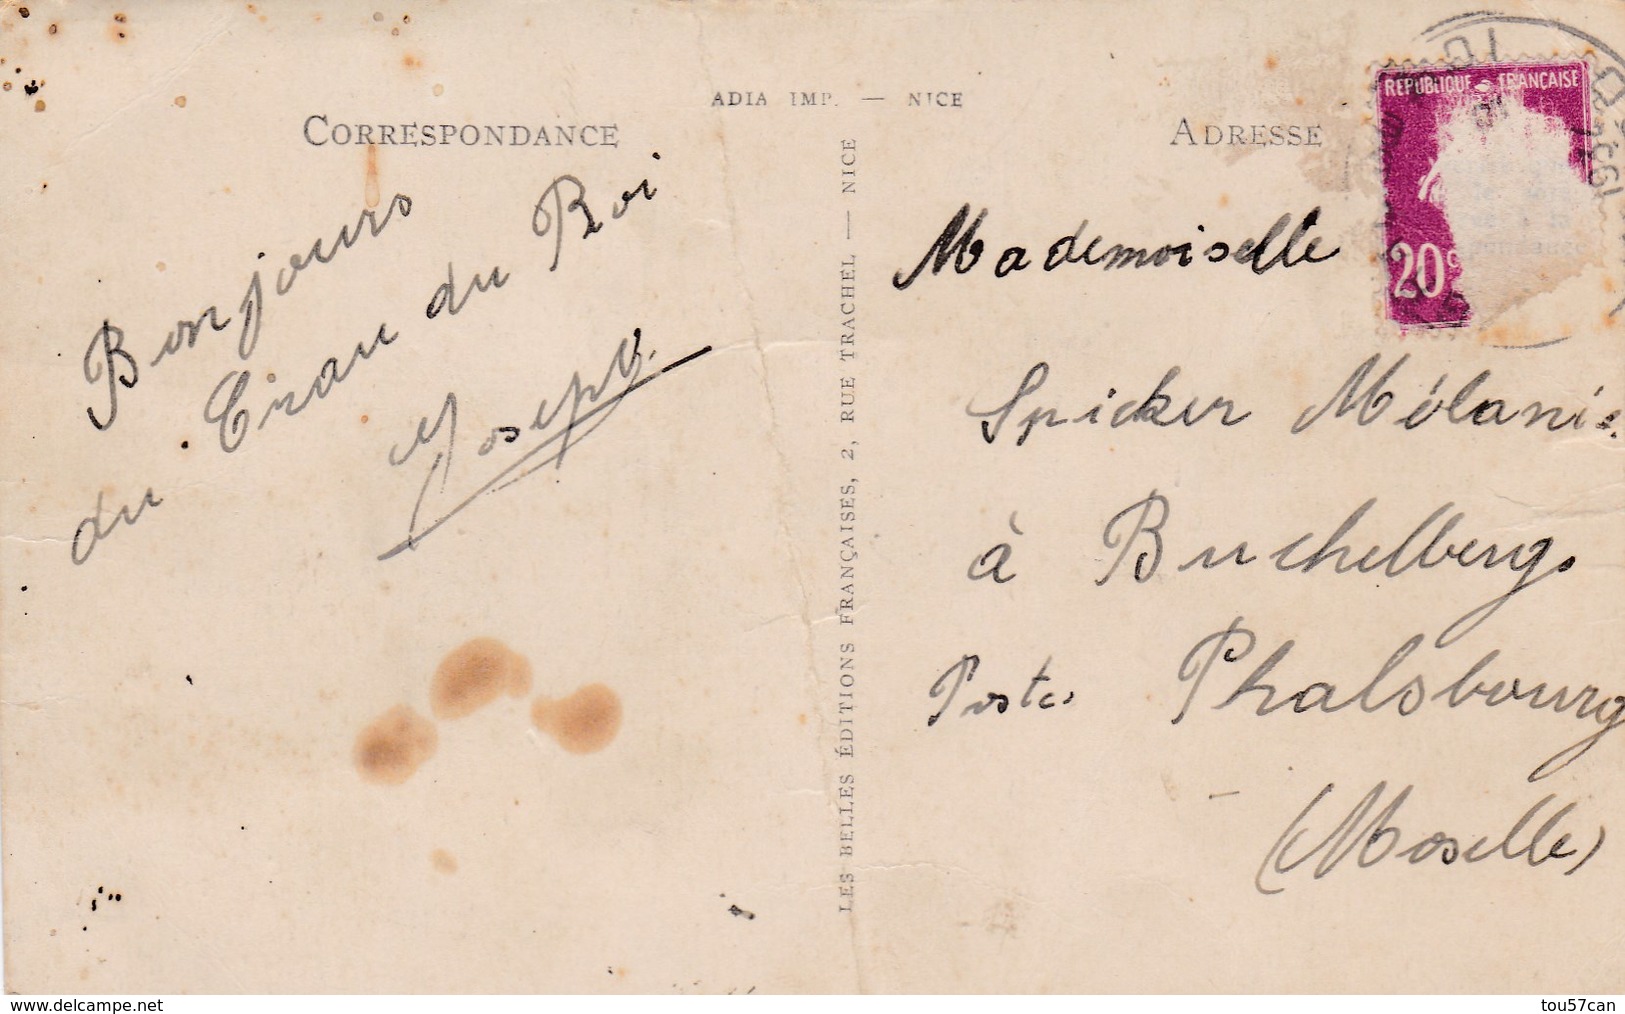 ADIA IMP. — NICE
CORRESPONDANCE
Bonjours
du Crau du Roi
du
Joseph.
LES BELLES ÉDITIONS FRANÇAISES, 2, RUE TRACHEL — NICE
ADRESSE
RÉPUBLIQUE FRANÇAISE
20c
Mademoiselle
Spicker Mélanie
à Buchelberg.
Poste. Phalsbourg
(Moselle)
www.delcampe.net
tou57can